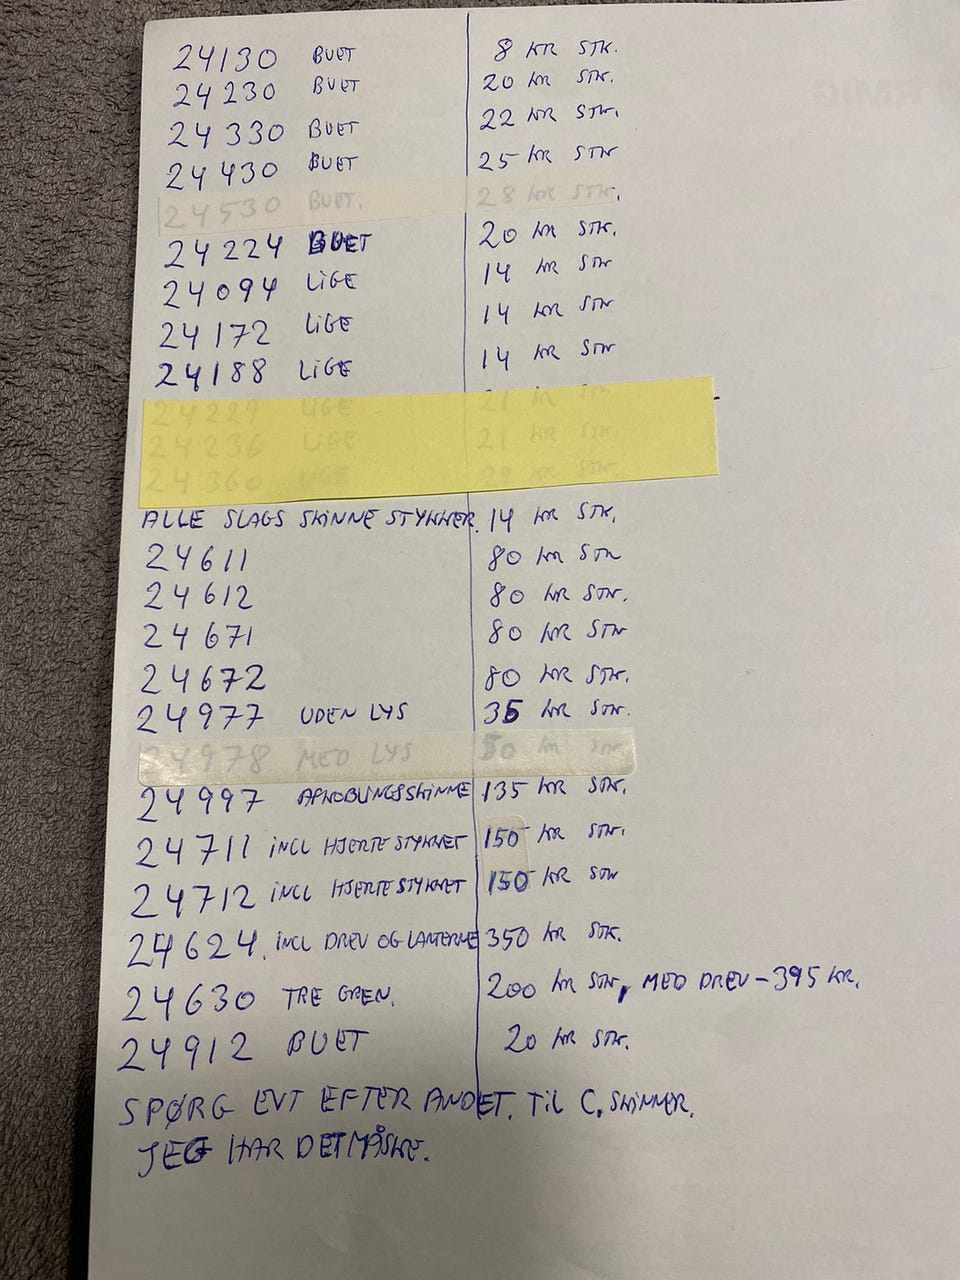 24130 BUET 8 KR STK.
24230 BUET 20 KR STK.
24330 BUET 22 KR STK.
24430 BUET 25 KR STK
24530 BUET. 28 KR STK.
24224 BUET 20 KR STK.
24094 LIGE 14 KR STK
24172 LIGE 14 KR STK
24188 LIGE 14 KR STK
24229 LIGE 21 KR STK
24236 LIGE 21 KR STK.
24360 LIGE KR STK.
ALLE SLAGS SKINNE STYKKER. 14 KR STK.
24611 80 KR STK
24612 80 KR STK.
24671 80 KR STK
24672 80 KR STK.
24977 UDEN LYS 35 KR STK.
24978 MED LYS 50 KR STK
24997 AFKOBLINGSSKINNE 135 KR STK.
24711 INCL HJERTESTYKKET 150 KR STK.
24712 INCL HJERTESTYKKET 150 KR STK
24624. INCL DREV OG LANTERNE 350 KR STK.
24630 TRE GREN. 200 KR STK, MED DREV - 395 KR.
24912 BUET 20 KR STK.
SPØRG EVT EFTER ANDET. TIL C. SKINNER.
JEG HAR DET MÅSKE.
RMIG